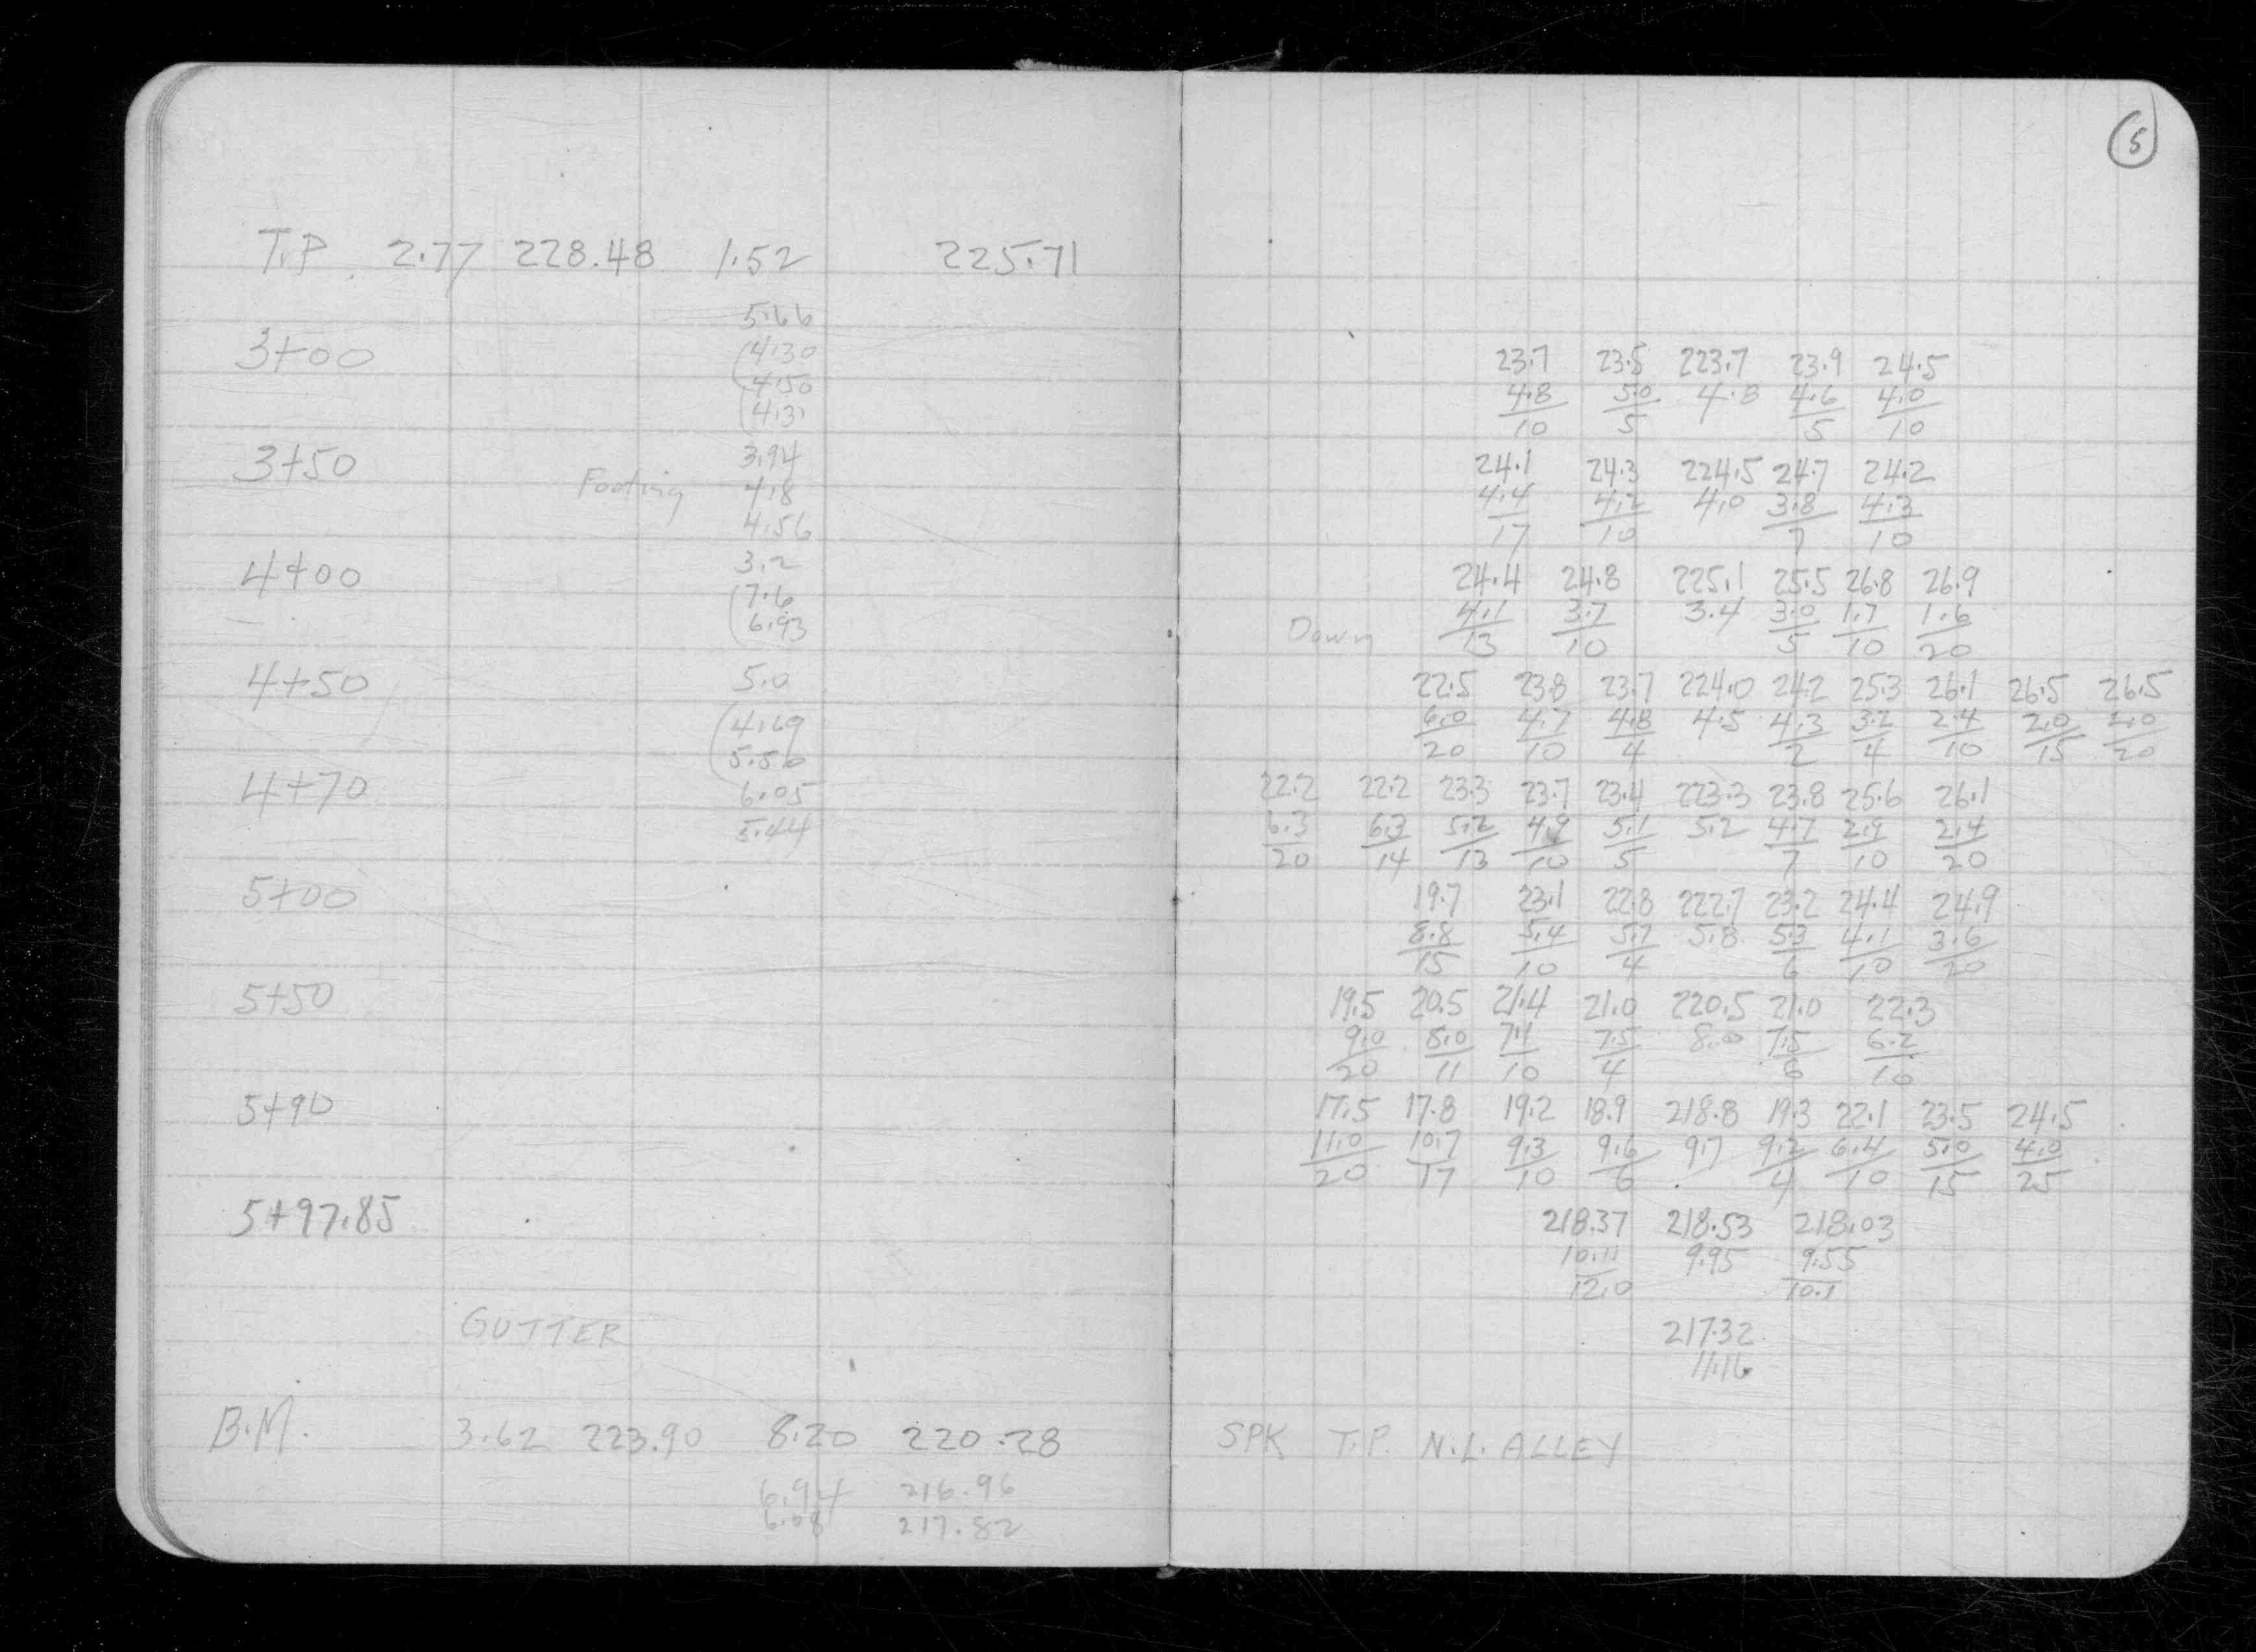 5
T.P. 2.77 228.48 1.52 225.71
5.66
3+00 (4.30
4.50
(4.31
3+50 3.94
Footing 4.8
4.56
4+00 3.2
(7.6
6.93
4+50 5.0
(4.69
5.50
4+70 6.05
5.44
5+00
5+50
5+90
5+97.85
GUTTER
B.M. 3.62 223.90 8.20 220.28
6.94 216.96
6.08 217.82
23.7 23.5 223.7 23.9 24.5
4.8 5.0 4.8 4.6 4.0
10 5 5 10
24.1 24.3 224.5 24.7 24.2
4.4 4.2 4.0 3.8 4.3
17 10 7 10
24.4 24.8 225.1 25.5 26.8 26.9
Down 4.1 3.7 3.4 3.0 1.7 1.6
13 10 5 10 20
22.5 23.8 23.7 224.0 24.2 25.3 26.1 26.5 26.5
6.0 4.7 4.8 4.5 4.3 3.2 2.4 2.0 2.0
20 10 4 2 4 10 15 20
22.2 22.2 23.3 23.7 23.4 223.3 23.8 25.6 26.1
6.3 6.3 5.2 4.9 5.1 5.2 4.7 2.9 2.4
20 14 13 10 5 7 10 20
19.7 23.1 22.8 222.7 23.2 24.4 24.9
8.8 5.4 5.7 5.8 5.3 4.1 3.6
15 10 4 6 10 20
19.5 20.5 21.4 21.0 220.5 21.0 22.3
9.0 8.0 7.1 7.5 8.0 7.5 6.2
20 11 10 4 6 10
17.5 17.8 19.2 18.9 218.8 19.3 22.1 23.5 24.5
11.0 10.7 9.3 9.6 9.7 9.2 6.4 5.0 4.0
20 17 10 6 4 10 15 25
218.37 218.53 218.03
10.11 9.95 9.55
12.0 10.1
217.32
11.16
SPK T.P. N.L. ALLEY